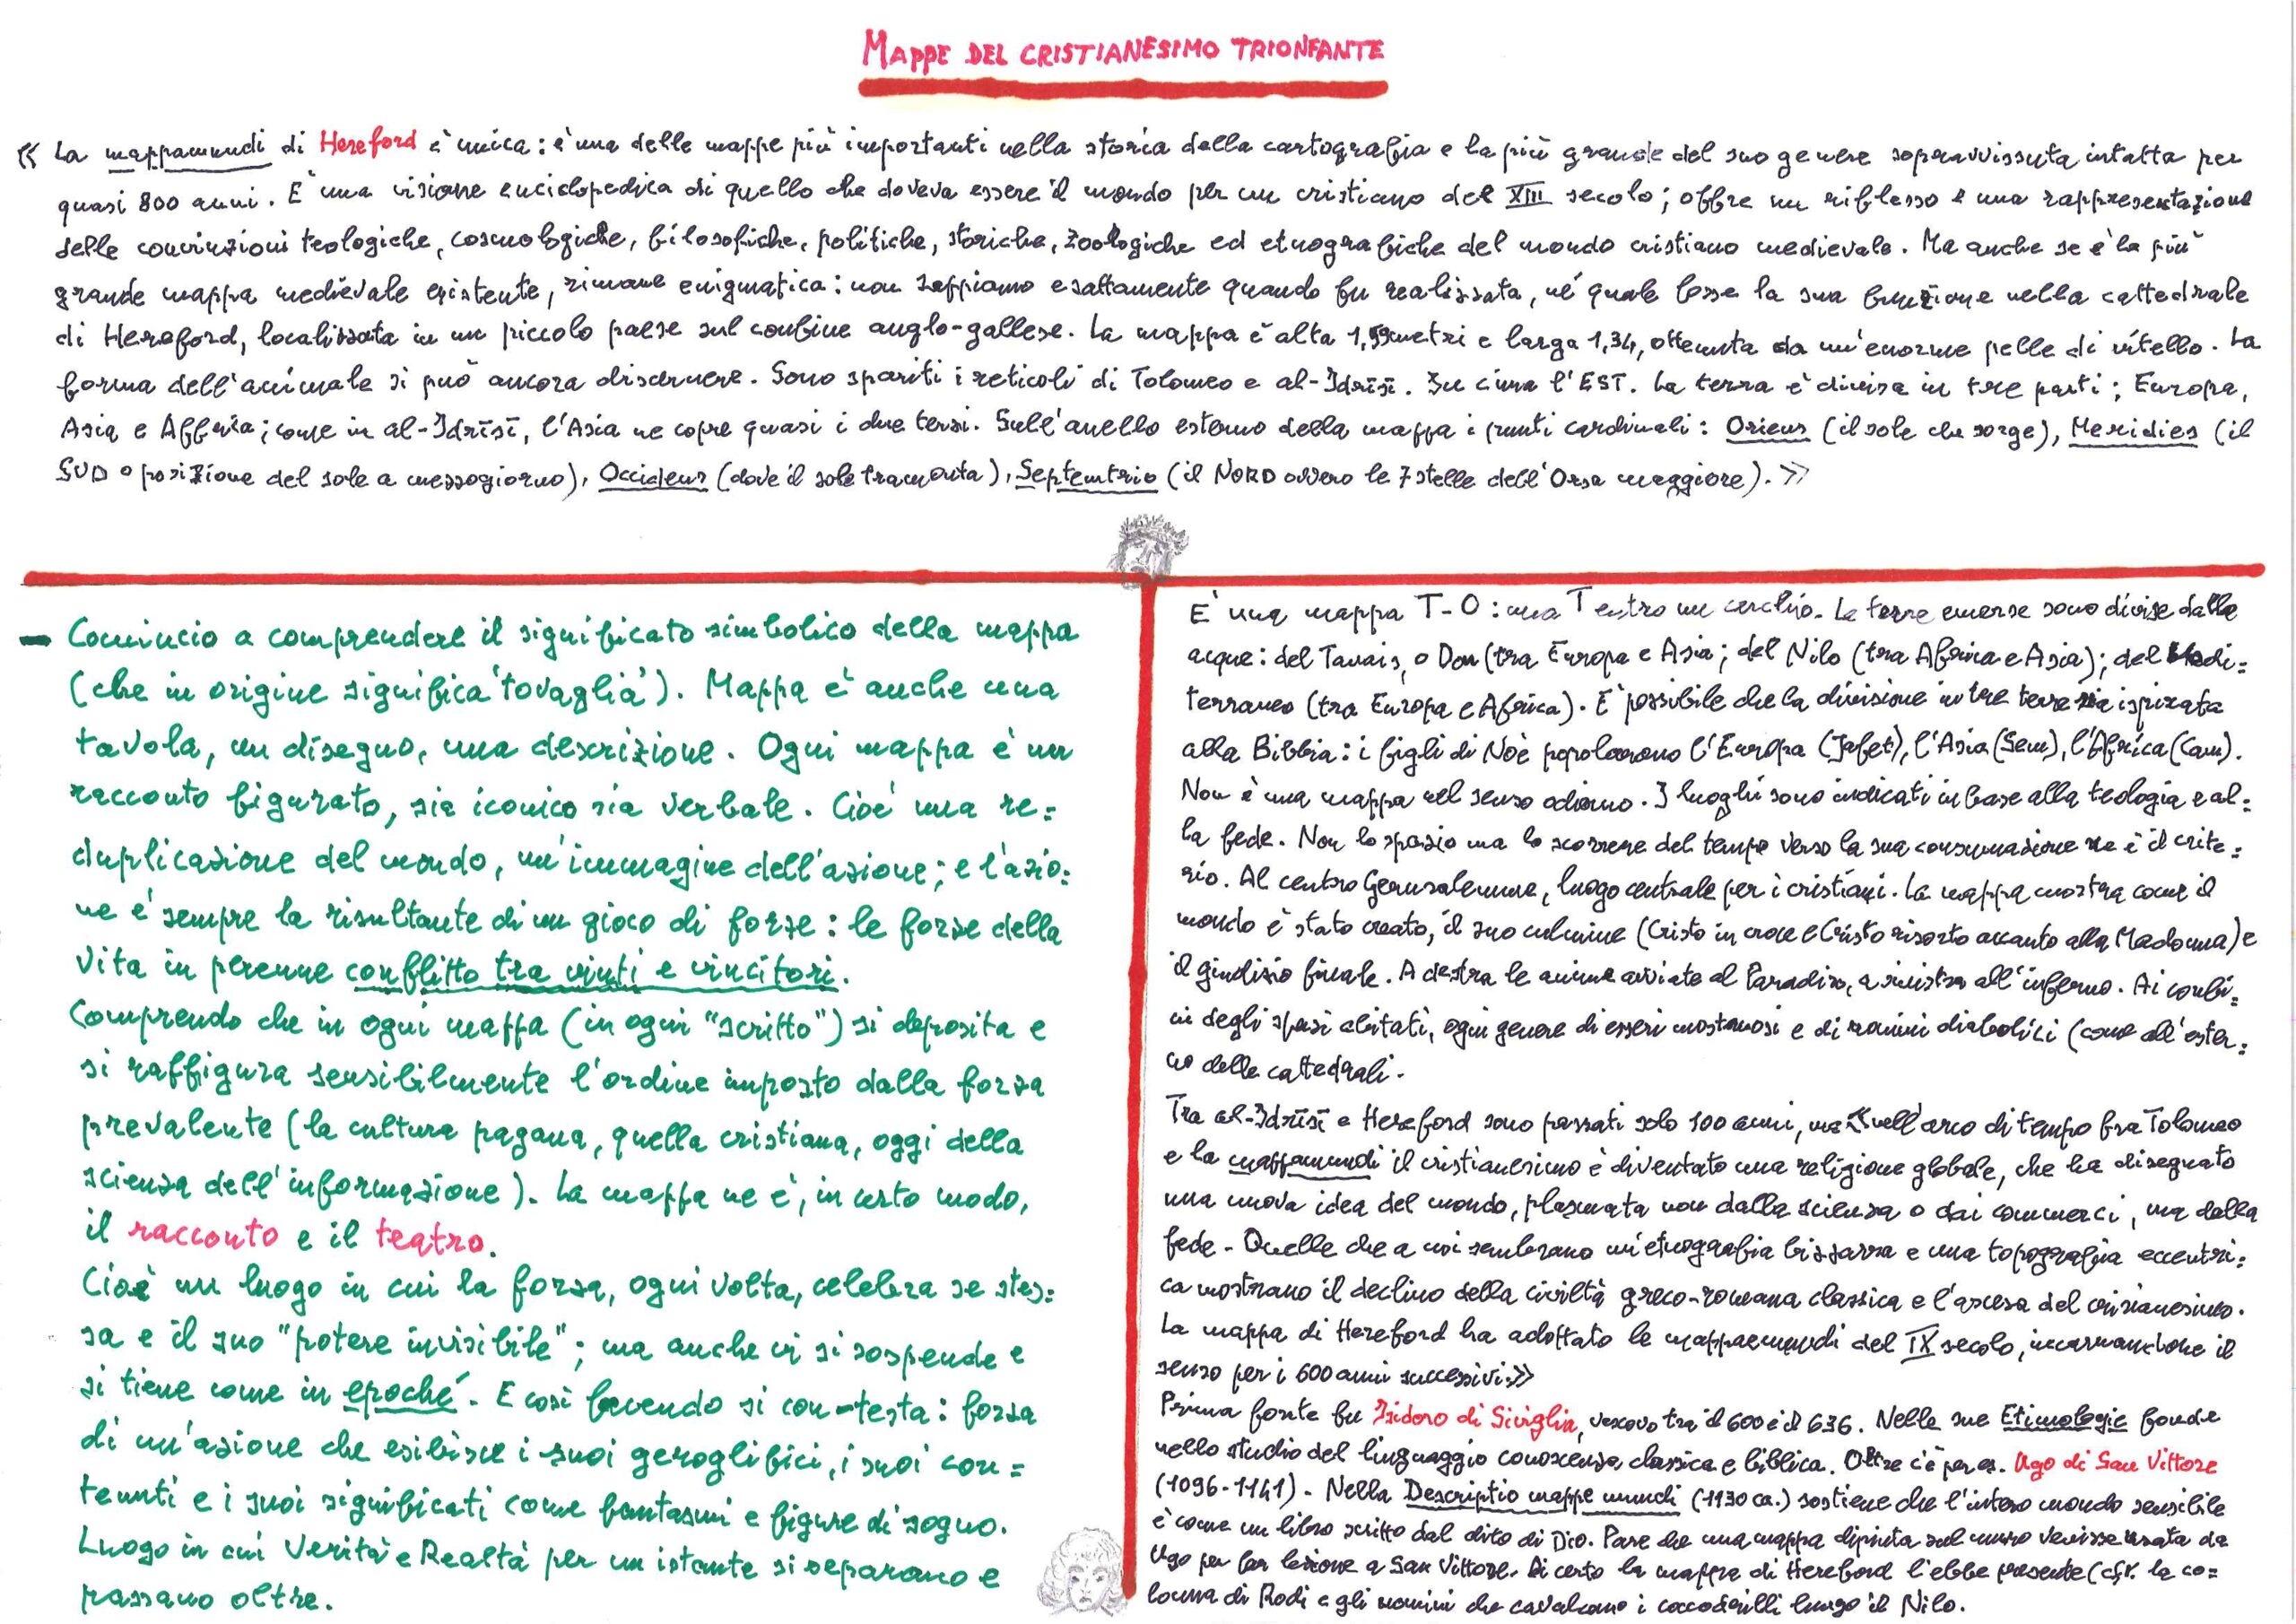 MAPPE DEL CRISTIANESIMO TRIONFANTE
« La mappamundi di Hereford è unica: è una delle mappe più importanti nella storia della cartografia e la più grande del suo genere sopravvissuta intatta per
quasi 800 anni. È una visione enciclopedica di quello che doveva essere il mondo per un cristiano del XIII secolo; offre un riflesso e una rappresentazione
delle convinzioni teologiche, cosmologiche, filosofiche, politiche, storiche, zoologiche ed etnografiche del mondo cristiano medievale. Ma anche se è la più
grande mappa medievale esistente, rimane enigmatica: non sappiamo esattamente quando fu realizzata, né quale fosse la sua funzione nella cattedrale
di Hereford, localizzata in un piccolo paese sul confine anglo-gallese. La mappa è alta 1,59 metri e larga 1,34, ottenuta da un'enorme pelle di vitello. La
forma dell'animale si può ancora discernere. Sono spariti i reticoli di Tolomeo e al-Idrīsī. In cima l'EST. La terra è divisa in tre parti: Europa,
Asia e Affrica; come in al-Idrīsī, l'Asia ne copre quasi i due terzi. Sull'anello esterno della mappa i punti cardinali: Oriens (il sole che sorge), Meridies (il
SUD o posizione del sole a mezzogiorno), Occidens (dove il sole tramonta), Septemtrio (il NORD ovvero le 7 stelle dell'Orsa maggiore). »
– Comincio a comprendere il significato simbolico della mappa
(che in origine significa 'tovaglia'). Mappa è anche una
tavola, un disegno, una descrizione. Ogni mappa è un
racconto figurato, sia iconico sia verbale. Cioè una re=
duplicazione del mondo, un'immagine dell'azione; e l'azio:
ne è sempre la risultante di un gioco di forze: le forze della
vita in perenne conflitto tra vinti e vincitori.
Comprendo che in ogni mappa (in ogni "scritto") si deposita e
si raffigura sensibilmente l'ordine imposto dalla forza
prevalente (la cultura pagana, quella cristiana, oggi della
scienza dell'informazione). La mappa ne è, in certo modo,
il racconto e il teatro.
Cioè un luogo in cui la forza, ogni volta, celebra se stes:
sa e il suo "potere invisibile"; ma anche vi si sospende e
si tiene come in epoché. E così facendo si con-testa: forza
di un'azione che esibisce i suoi geroglifici, i suoi con=
tenuti e i suoi significati come fantasmi e figure di sogno.
Luogo in cui Verità e Realtà per un istante si separano e
passano oltre.
È una mappa T-O: una T entro un cerchio. Le terre emerse sono divise dalle
acque: del Tanais, o Don (tra Europa e Asia; del Nilo (tra Africa e Asia); del Medi=
terraneo (tra Europa e Africa). È possibile che la divisione in tre terre sia ispirata
alla Bibbia: i figli di Noè popolarono l'Europa (Jafet), l'Asia (Sem), l'Africa (Cam).
Non è una mappa nel senso odierno. I luoghi sono indicati in base alla teologia e al=
la fede. Non lo spazio ma lo scorrere del tempo verso la sua consumazione ne è il crite=
rio. Al centro Gerusalemme, luogo centrale per i cristiani. La mappa mostra come il
mondo è stato creato, il suo culmine (Cristo in croce e Cristo risorto accanto alla Madonna) e
il giudizio finale. A destra le anime avviate al Paradiso, a sinistra all'inferno. Ai confi=
ni degli spazi abitati, ogni genere di esseri mostruosi e di uomini diabolici (come all'ester=
no delle cattedrali.
Tra al-Idrīsī e Hereford sono passati solo 100 anni, ma « nell'arco di tempo fra Tolomeo
e la mappamundi il cristianesimo è diventato una religione globale, che ha disegnato
una nuova idea del mondo, plasmata non dalla scienza o dai commerci, ma dalla
fede. Quelle che a noi sembrano un'etnografia bizzarra e una topografia eccentri=
ca mostrano il declino della civiltà greco-romana classica e l'ascesa del cristianesimo.
La mappa di Hereford ha adottato le mappaemundi del IX secolo, incarnandone il
senso per i 600 anni successivi.»
Prima fonte fu Isidoro di Siviglia, vescovo tra il 600 e il 636. Nelle sue Etimologie fonde
nello studio del linguaggio conoscenza classica e biblica. Oltre c'è per es. Ugo di San Vittore
(1096-1141). Nella Descriptio mappe mundi (1130 ca.) sostiene che l'intero mondo sensibile
è come un libro scritto dal dito di Dio. Pare che una mappa dipinta sul muro venisse usata da
Ugo per far lezione a San Vittore. Di certo la mappa di Hereford l'ebbe presente (cfr. la co=
lonna di Rodi e gli uomini che cavalcano i coccodrilli lungo il Nilo.